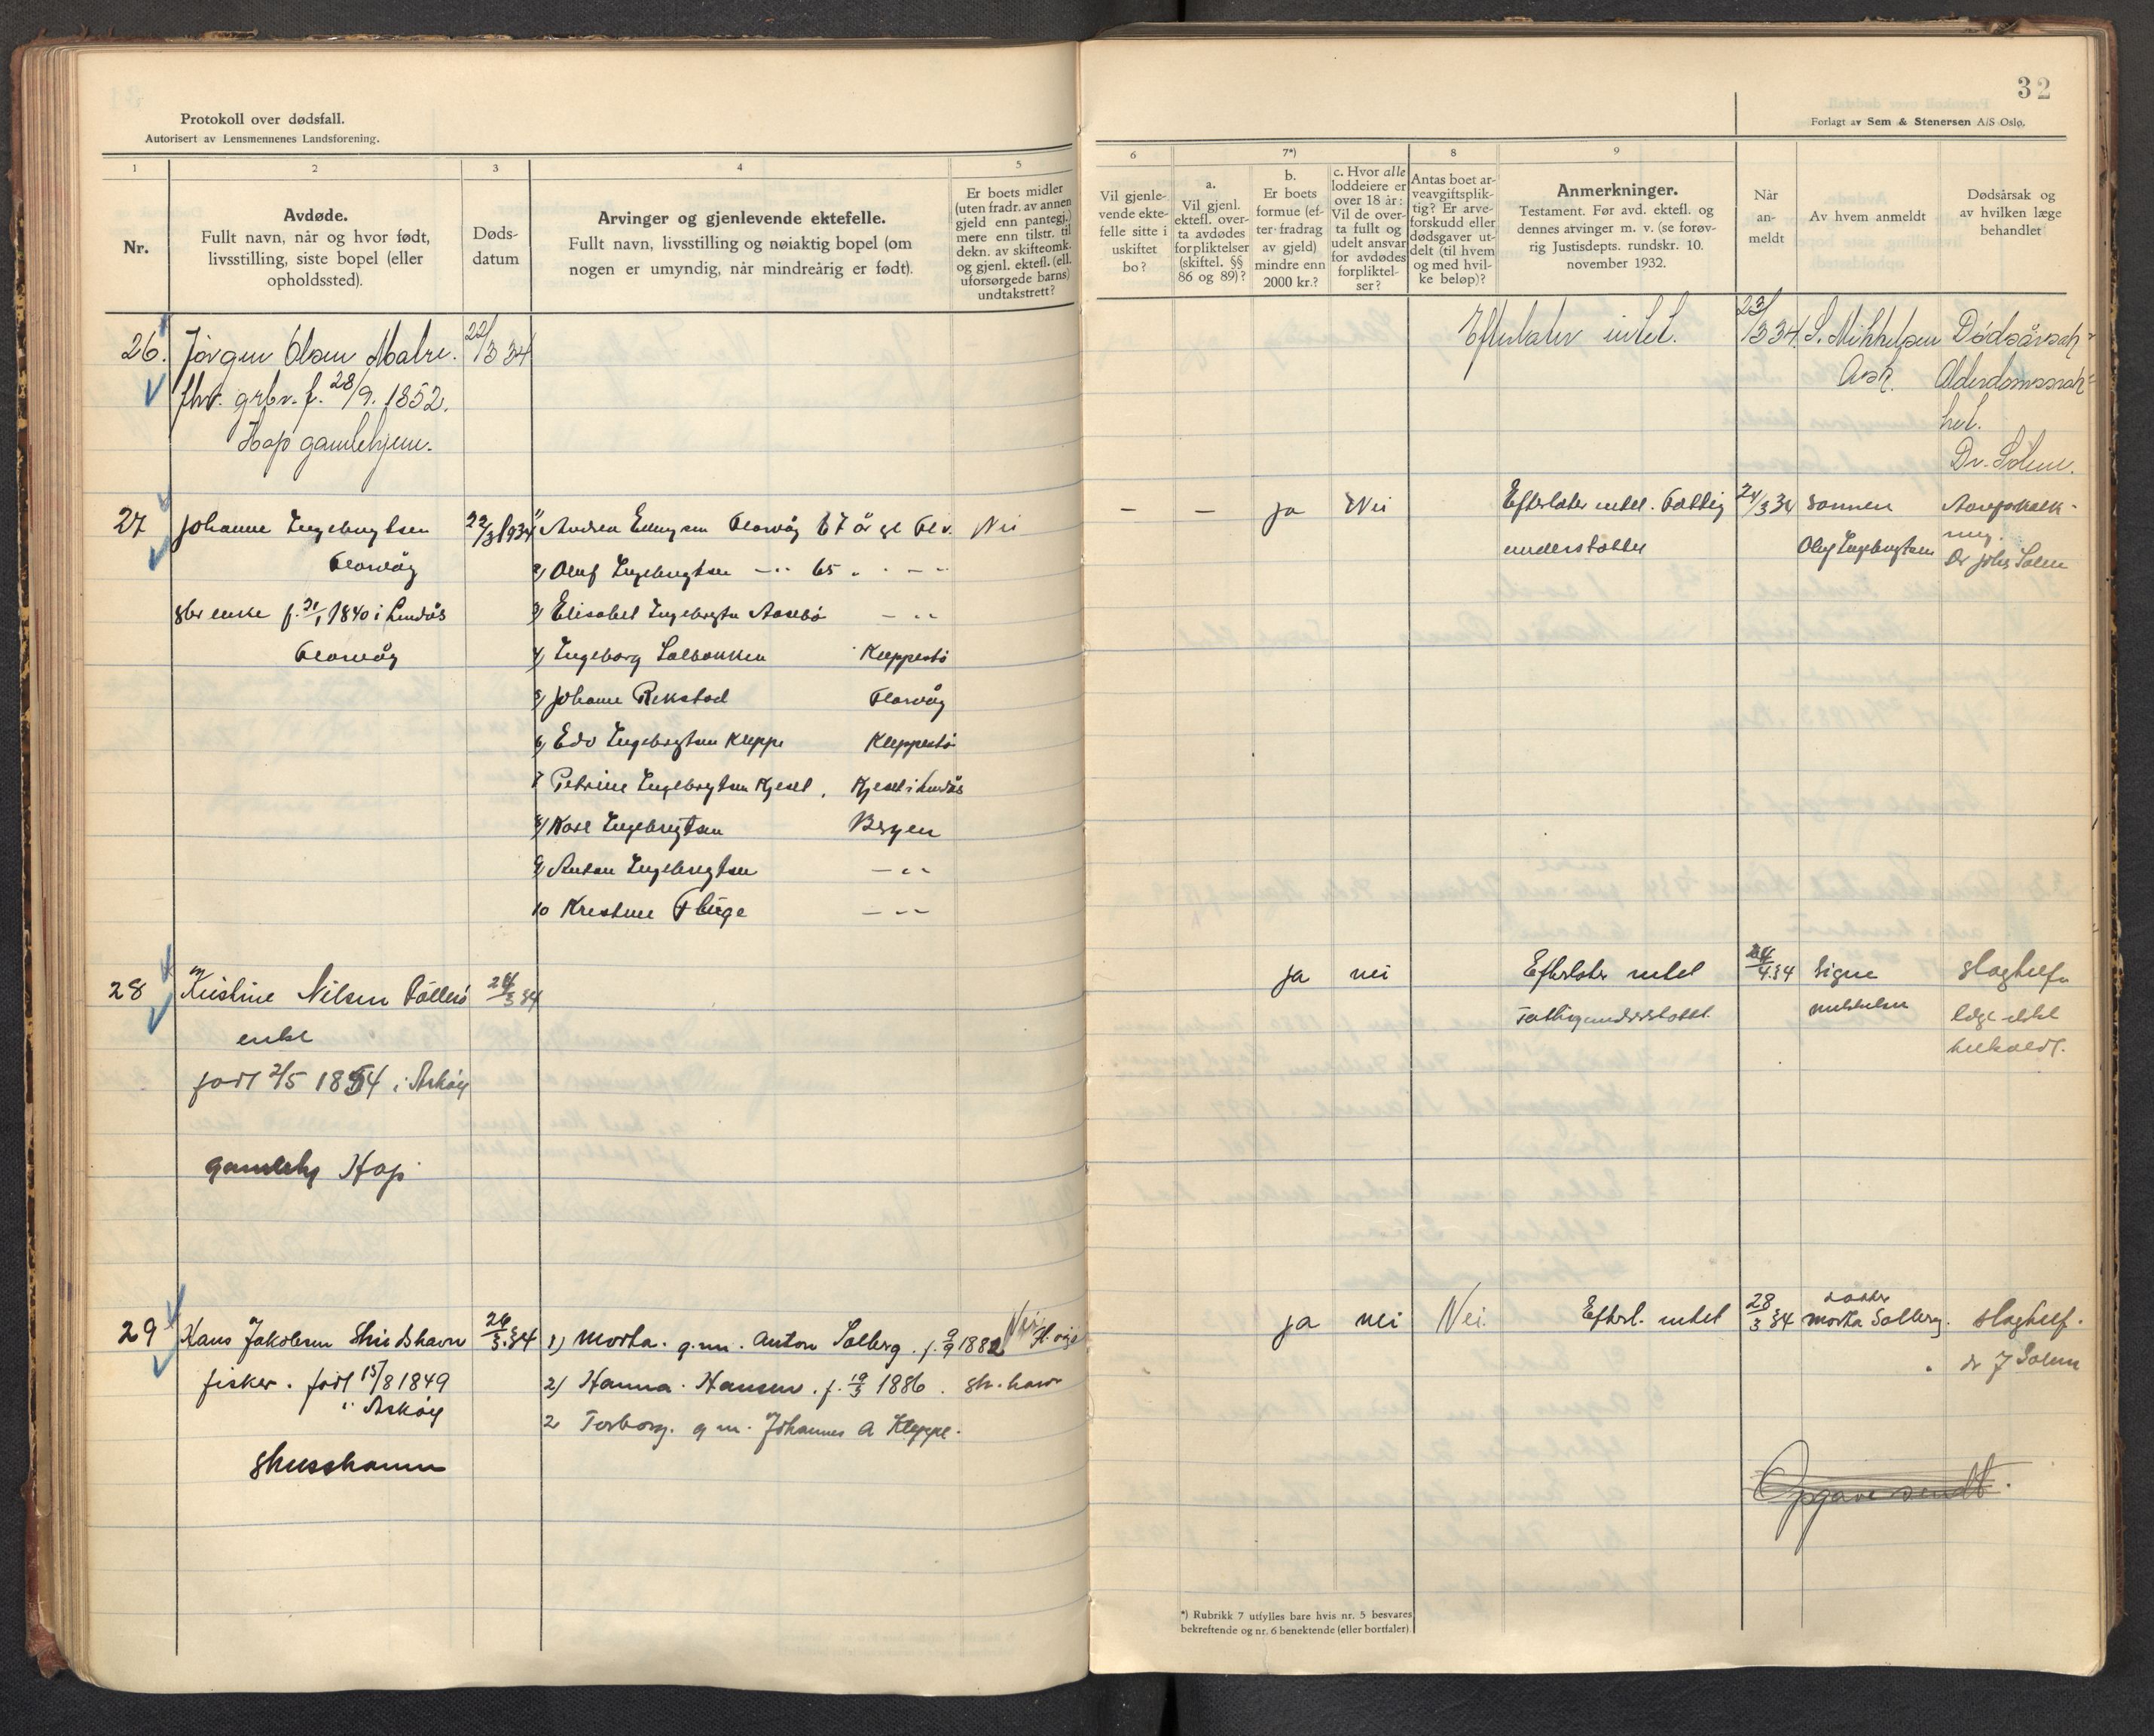 32
Protokoll over dødsfall.
Autorisert av Lensmennenes Landsforening.
Forlagt av Sem & Stenersen A/S Oslo.
1
2
3
4
5
6
7*)
8
9
Nr.
Avdøde.
Fullt navn, når og hvor født,
livsstilling, siste bopel (eller
opholdssted).
Døds-
datum
Arvinger og gjenlevende ektefelle.
Fullt navn, livsstilling og nøiaktig bopel (om
nogen er umyndig, når mindreårig er født).
Er boets midler
(uten fradr. av annen
gjeld enn pantegj.)
mere enn tilstr. til
dekn. av skifteomk.
og gjenl. ektefl. (ell.
uforsørgede barns)
undtakstrett?
Vil gjenle-
vende ekte-
felle sitte i
uskiftet
bo?
a.
Vil gjenl.
ektefl. over-
ta avdødes
forpliktelser
(skiftel. §§
86 og 89)?
b.
Er boets
formue (ef-
ter fradrag
av gjeld)
mindre enn
2000 kr.?
c. Hvor alle
loddeiere er
over 18 år:
Vil de over-
ta fullt og
udelt ansvar
for avdødes
forpliktel-
ser?
Antas boet ar-
veavgiftsplik-
tig? Er arve-
forskudd eller
dødsgaver ut-
delt (til hvem
og med hvil-
ke beløp)?
Anmerkninger.
Testament. Før avd. ektefl. og
dennes arvinger m. v. (se forøv-
rig Justisdepts. rundskr. 10.
november 1932.
Når
an-
meldt
Av hvem anmeldt
Dødsårsak og
av hvilken læge
behandlet
26. Jørgen Olsen Matre. 22/3 34
fhv. grbr. f. 28/9. 1852.
Hop gamlehjem.
Efterlater intet. 23/3 34. S. Mikkelsen Dødsårsak
Ask. Alderdomssvak-
het.
Dr. Solem.
27 Johanne Ingebrigtsen 22/3 1934
Florvåg
gbr enke f. 21/1 1840 i Lindås
Florvåg
1/ Florvåg 67 år gl Flv. Nei
2/ Oluf Ingebrigtsen -"- 65 " - -
3/ Elisabet Ingebrigtsen - "
4/ Ingeborg Solbakken Kleppestø
5/ Johanne Rekstad Florvåg
6/ Edv Ingebrigtsen Kleppe Kleppestø
7 Petrine Ingebrigtsen Kjeset, Kjeset i Lindås
8/ Ingebrigtsen Bergen
9/ Anton Ingebrigtsen -"-
10 Kristine Fluge -"-
- - ja Nei Efterlater intet. Fattig
understøttet
24/3 34 sønnen
Oluf Ingebrigtsen
Aareforkalk-
ning.
Dr Johs Solem
28 Kristine Nilsen 24/3 34
enke
født 2/5 1854 i Askøy
gamlehj Hop
ja nei Efterlater intet
Fattigunderstøttet.
24/4.34 Signe
Mikkelsen
slagtilf.
læge ikke
tilkaldt.
29 Hans Jakobsen 26/3.34
fisker. født 15/8 1849
i Askøy
1) Marta. g.m. Anton Solberg. f. 9/9 1882 Nei.
2) Hanna. Hansen. f. 19/3 1886.
2 Torborg. g m. Johannes A Kleppe.
ja nei Nei. Efterl. intet 28/3 34 datter
Marta Solberg.
slagtilf.
dr J Solem
Opgave sendt.
*) Rubrikk 7 utfylles bare hvis nr. 5 besvares
bekreftende og nr. 6 benektende (eller bortfaler).